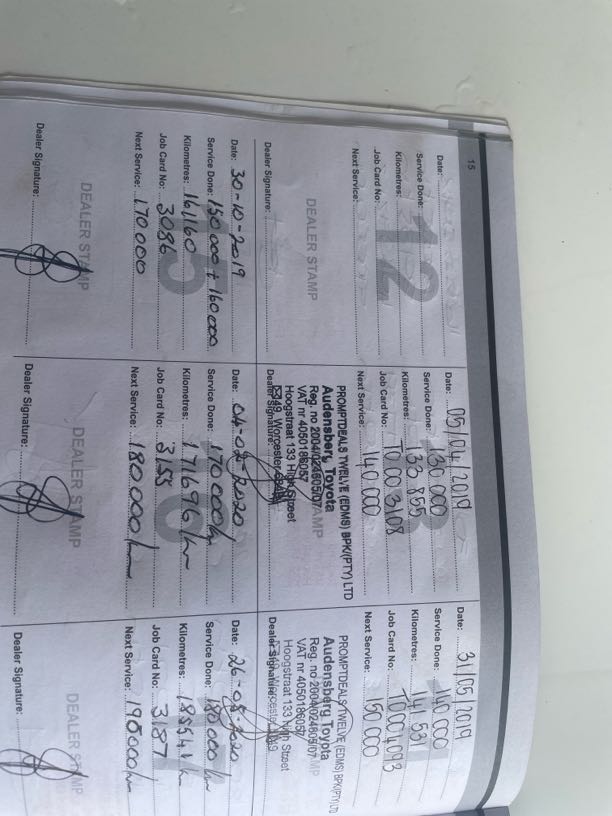 15
Date:
Service Done:
Kilometres:
Job Card No:
Next Service:
12
DEALER STAMP
Dealer Signature:
Date: 05/04/2019
Service Done: 130 000
Kilometres: 133 855
Job Card No: T0003108
Next Service: 140 000
PROMPTDEALS TWELVE (EDMS) BPK/(PTY) LTD
Audensberg Toyota
Reg. no 2004/024605/07
VAT nr 4050186057
Hoogstraat 133 High Street
349, Worcester 6849
Dealer Signature:
Date: 31/05/2019
Service Done: 140 000
Kilometres:
Job Card No: T0004093
Next Service: 150 000
PROMPTDEALS TWELVE (EDMS) BPK/(PTY) LTD
Audensberg Toyota
Reg. no 2004/024605/07
VAT nr 4050186057
Hoogstraat 133 High Street
349, Worcester 6849
Dealer Signature:
Date: 30-10-2019
Service Done: 150 000 + 160 000
Kilometres: 161160
Job Card No: 3086
Next Service: 170 000
15
DEALER STAMP
Dealer Signature:
Date: 04-02-2020
Service Done: 170 000
Kilometres: 171696
Job Card No: 3155
Next Service: 180 000
16
DEALER STAMP
Dealer Signature:
Date: 26-05-2020
Service Done: 180 000
Kilometres: 185541
Job Card No: 3187
Next Service: 195000
DEALER STAMP
Dealer Signature: